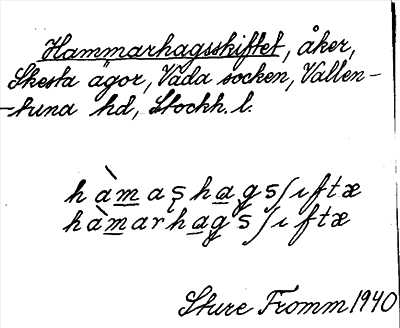 Hammarhagsskiftet, åker,
Skesta ägor, Vada socken, Vallen-
-tuna hd, Stockh. l.
hàmaşhagsʃiftæ
hàmarhagsʃiftæ
Sture Fromm 1940